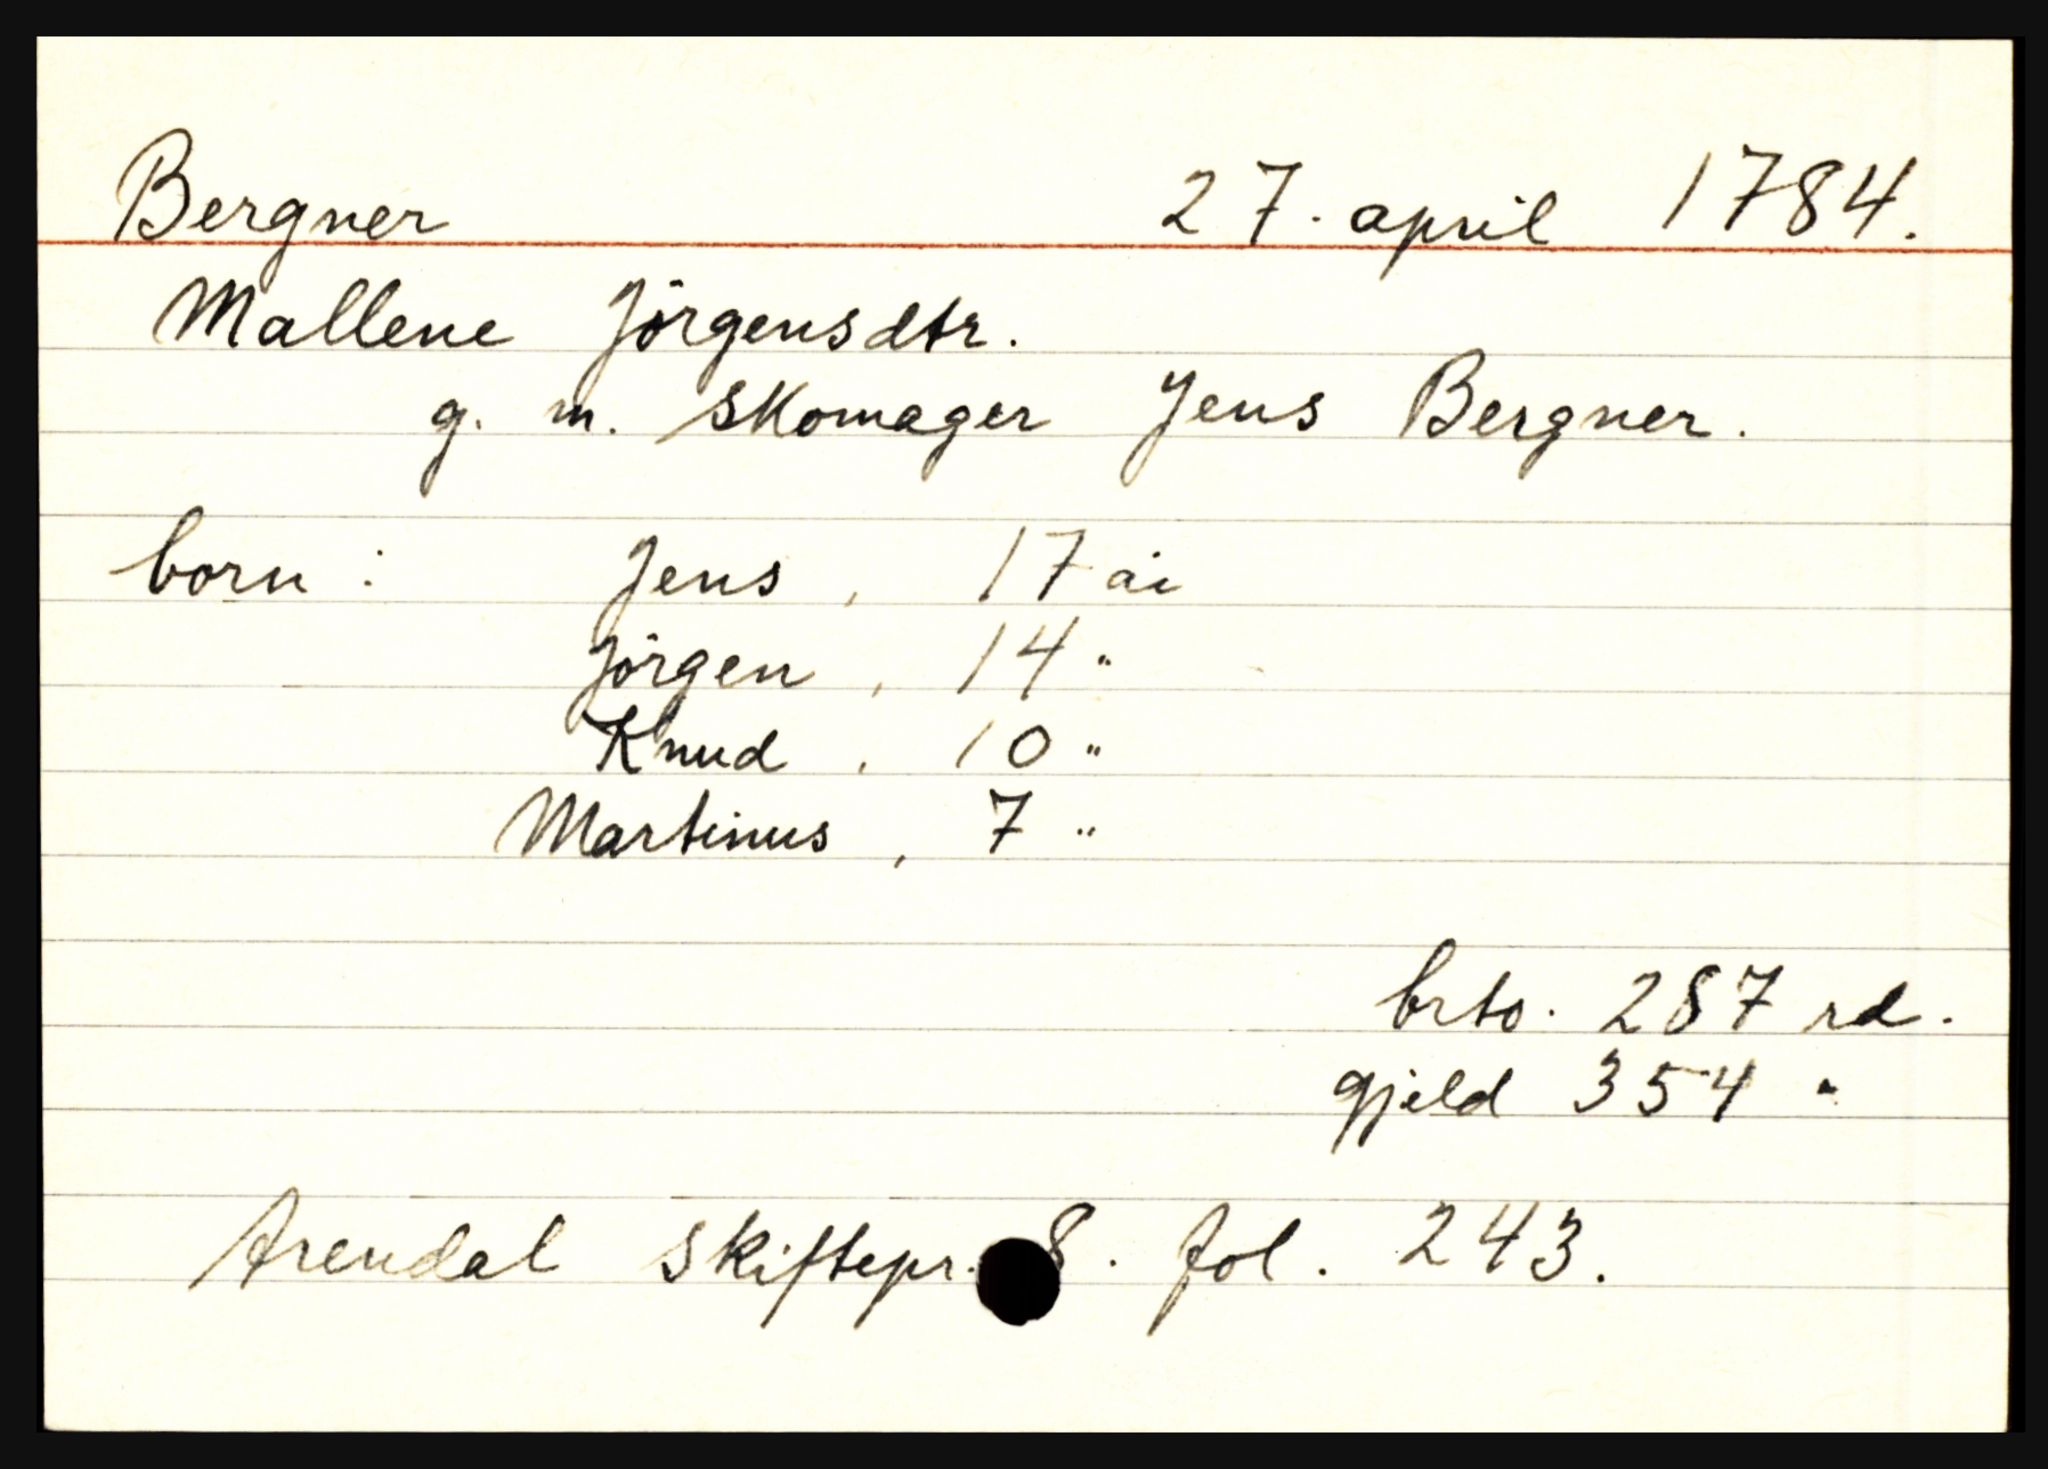 Bergner 27. april 1784.
Mallene Jörgensdtr.
g. m. skomager Jens Bergner.
born: Jens, 17 år
Jörgen, 14 "
Knud, 10 "
Martinus, 7 "
brto. 287 rd.
gjeld 354 "
Arendal skiftepr. 8. fol. 243.